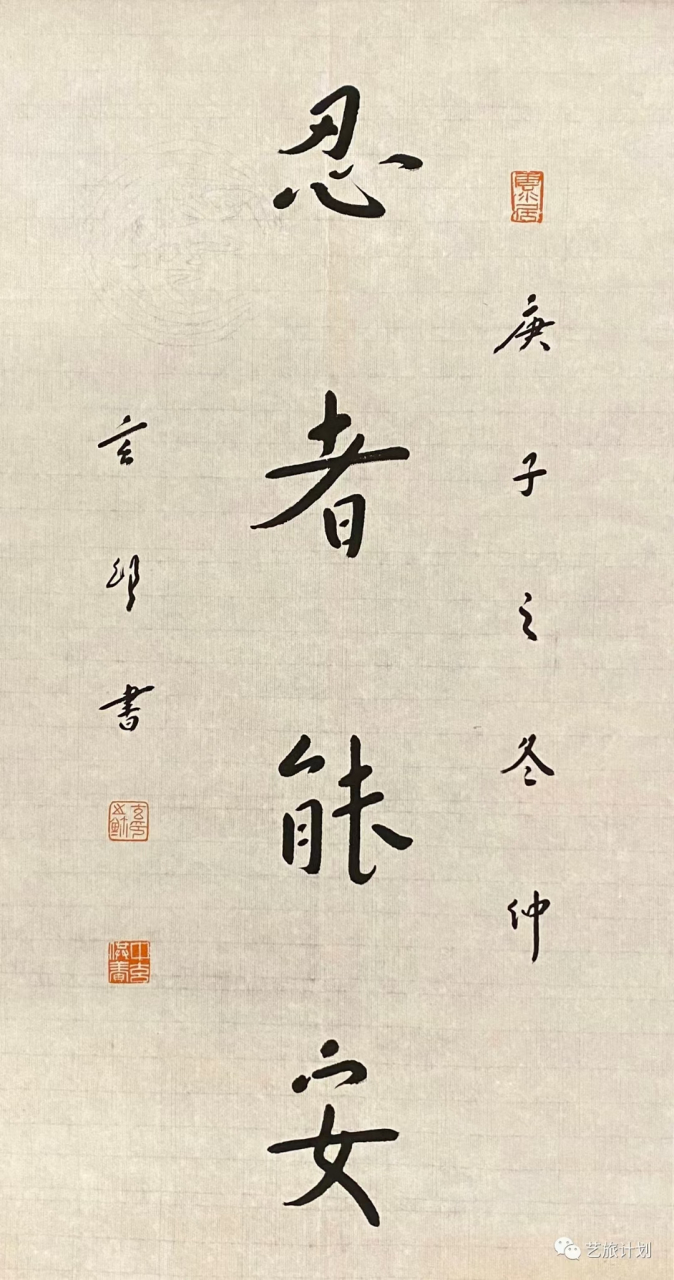 庚子之冬仲
忍者能安
書
艺旅计划